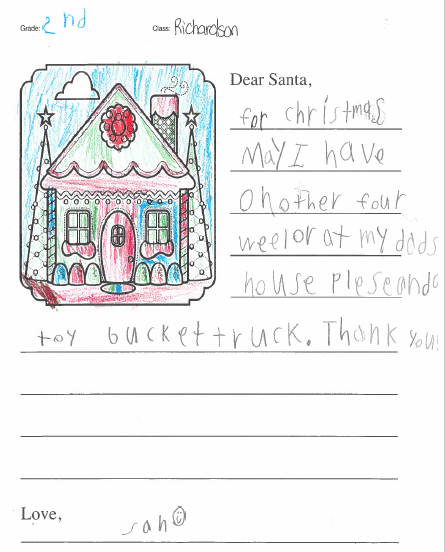 Grade: 2nd Class: Richardson
Dear Santa,
for christmas
May I have
Onother four
weelor at my dads
house pleseand a
toy bucket truck. Thank you!
Love,
sah